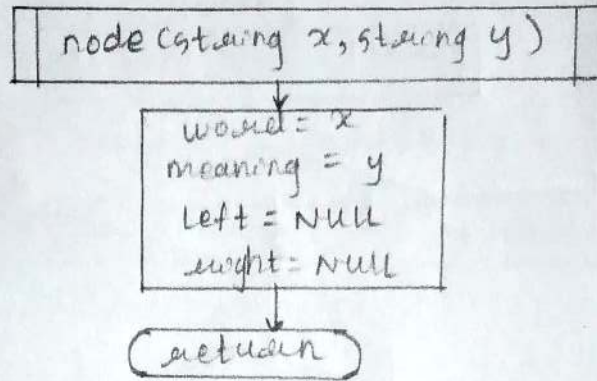 node (string x, string y)
word = x
meaning = y
left = NULL
right = NULL
return